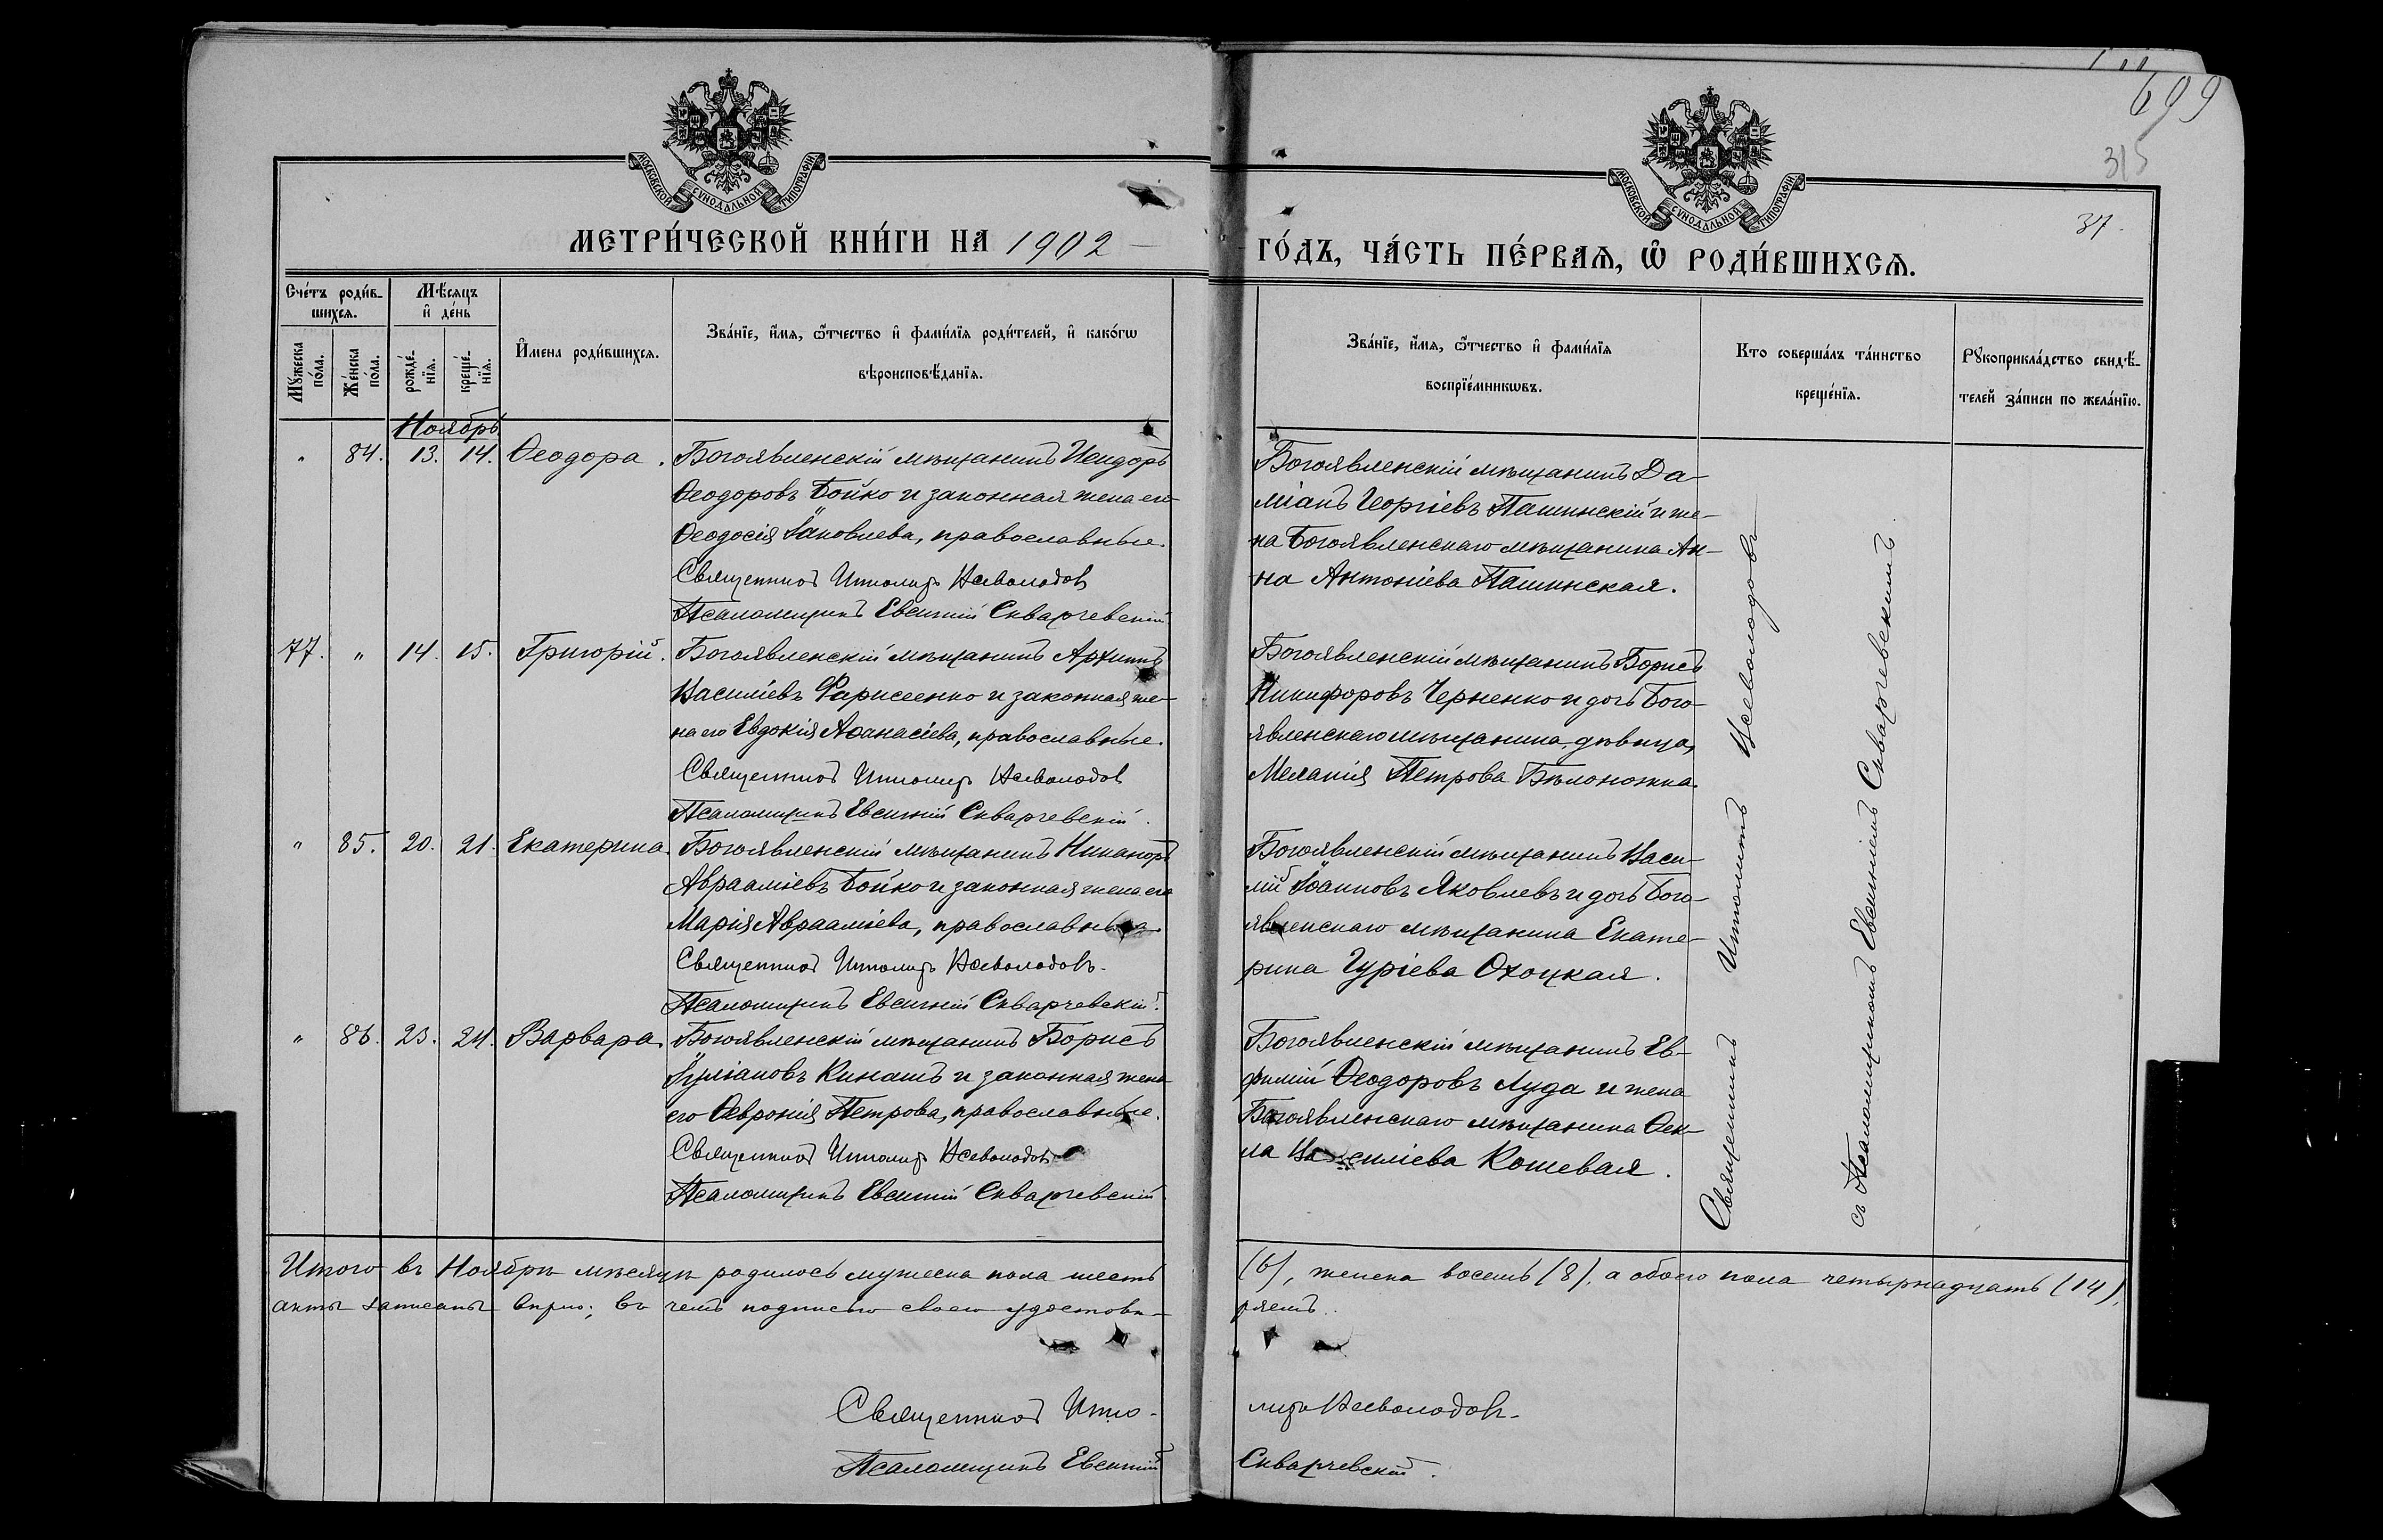 699
315
37.
МОСКОВСКОЙ СѴНОДАЛЬНОЙ ТИПОГРАФІИ
МОСКОВСКОЙ СѴНОДАЛЬНОЙ ТИПОГРАФІИ
МЕТРИ́ЧЕСКОЙ КНИ́ГИ НА 1902
ГО́ДЪ, ЧА́СТЬ ПЕ́РВАѦ, Ѡ҆ РОДИ́ВШИХСѦ.
Сче́тъ роди́в-
шихсѧ.
Мѣ́сѧцъ
и҆ де́нь
Мꙋ́жеска
по́ла.
Же́нска
по́ла.
рожде́-
нїѧ.
креще́-
нїѧ.
И҆мена роди́вшихсѧ.
Зва́нїе, и҆́мѧ, ѻ҆́тчество и҆ фами́лїѧ роди́телей, и҆ како́гѡ
вѣроисповѣ́данїѧ.
Зва́нїе, и҆́мѧ, ѻ҆́тчество и҆ фами́лїѧ
воспрїе́мникѡвъ.
Кто соверша́лъ та́инство
креще́нїѧ.
Рꙋкоприкла́дство свидѣ́-
телей за́писи по жела́нїю.
Ноябрь
" 84. 13. 14. Ѳеодора. Богоявленскій мѣщанинъ Исидоръ
Ѳеодоровъ Бойко и законная жена его
Ѳеодосія Іаковлева, православные.
Священникъ Ипполитъ Всеволодовъ
Псаломщикъ Евгеній Скварчевскій
Богоявленскій мѣщанинъ Да-
міанъ Георгіевъ Пашинскій и же-
на Богоявленскаго мѣщанина Ан-
на Антоніева Пашинская.
77. " 14. 15. Григорій. Богоявленскій мѣщанинъ Архипъ
Василіевъ Фарисеенко и законная же-
на его Евдокія Аѳанасіева, православные.
Священникъ Ипполитъ Всеволодовъ
Псаломщикъ Евгеній Скварчевскій.
Богоявленскій мѣщанинъ Борисъ
Никифоровъ Черненко и дочь Бого-
явленскаго мѣщанина, дѣвица,
Меланія Петрова Бѣлоножка.
" 85. 20. 21. Екатерина. Богоявленскій мѣщанинъ Никаноръ
Авраамiевъ Бойко и законная жена его
Марія Авраамiева, православные.
Священникъ Ипполитъ Всеволодовъ.
Псаломщикъ Евгеній Скварчевскій.
Богоявленскій мѣщанинъ Васи-
лій Іоанновъ Яковлевъ и дочь Бого-
явленскаго мѣщанина Екате-
рина Гуріева Охоцкая.
" 86. 23. 24. Варвара. Богоявленскій мѣщанинъ Борисъ
Іуліановъ Кинашъ и законная жена
его Ѳевронія Петрова, православные.
Священникъ Ипполитъ Всеволодовъ
Псаломщикъ Евгеній Скварчевскій
Богоявленскій мѣщанинъ Ев-
фимій Ѳеодоровъ Луда и жена
Богоявленскаго мѣщанина Ѳек-
ла Василіева Кошевая.
Священникъ Ипполитъ Всеволодовъ
съ Псаломщикомъ Евгеніемъ Скварчевскимъ.
Итого въ Ноябрѣ мѣсяцѣ родилось мужеска пола шесть (6), женска восемь (8), а обоего пола четырнадцать (14),
акты записаны вѣрно; въ чемъ подписью своею удостовѣ-ряемъ.
Священникъ Иппо-литъ Всеволодовъ.
Псаломщикъ Евгеній Скварчевскій.